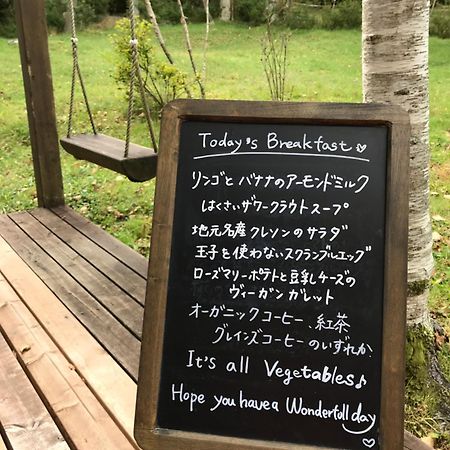 Today's Breakfast ♡
リンゴとバナナのアーモンドミルク
はくさいザワークラウトスープ
地元名産クレソンのサラダ
玉子を使わないスクランブルエッグ
ローズマリーポテトと豆乳チーズの
ヴィーガンガレット
オーガニックコーヒー、紅茶
グレインズコーヒーのいずれか
It's all Vegetables♪
Hope you have a Wonderfoll day ♡